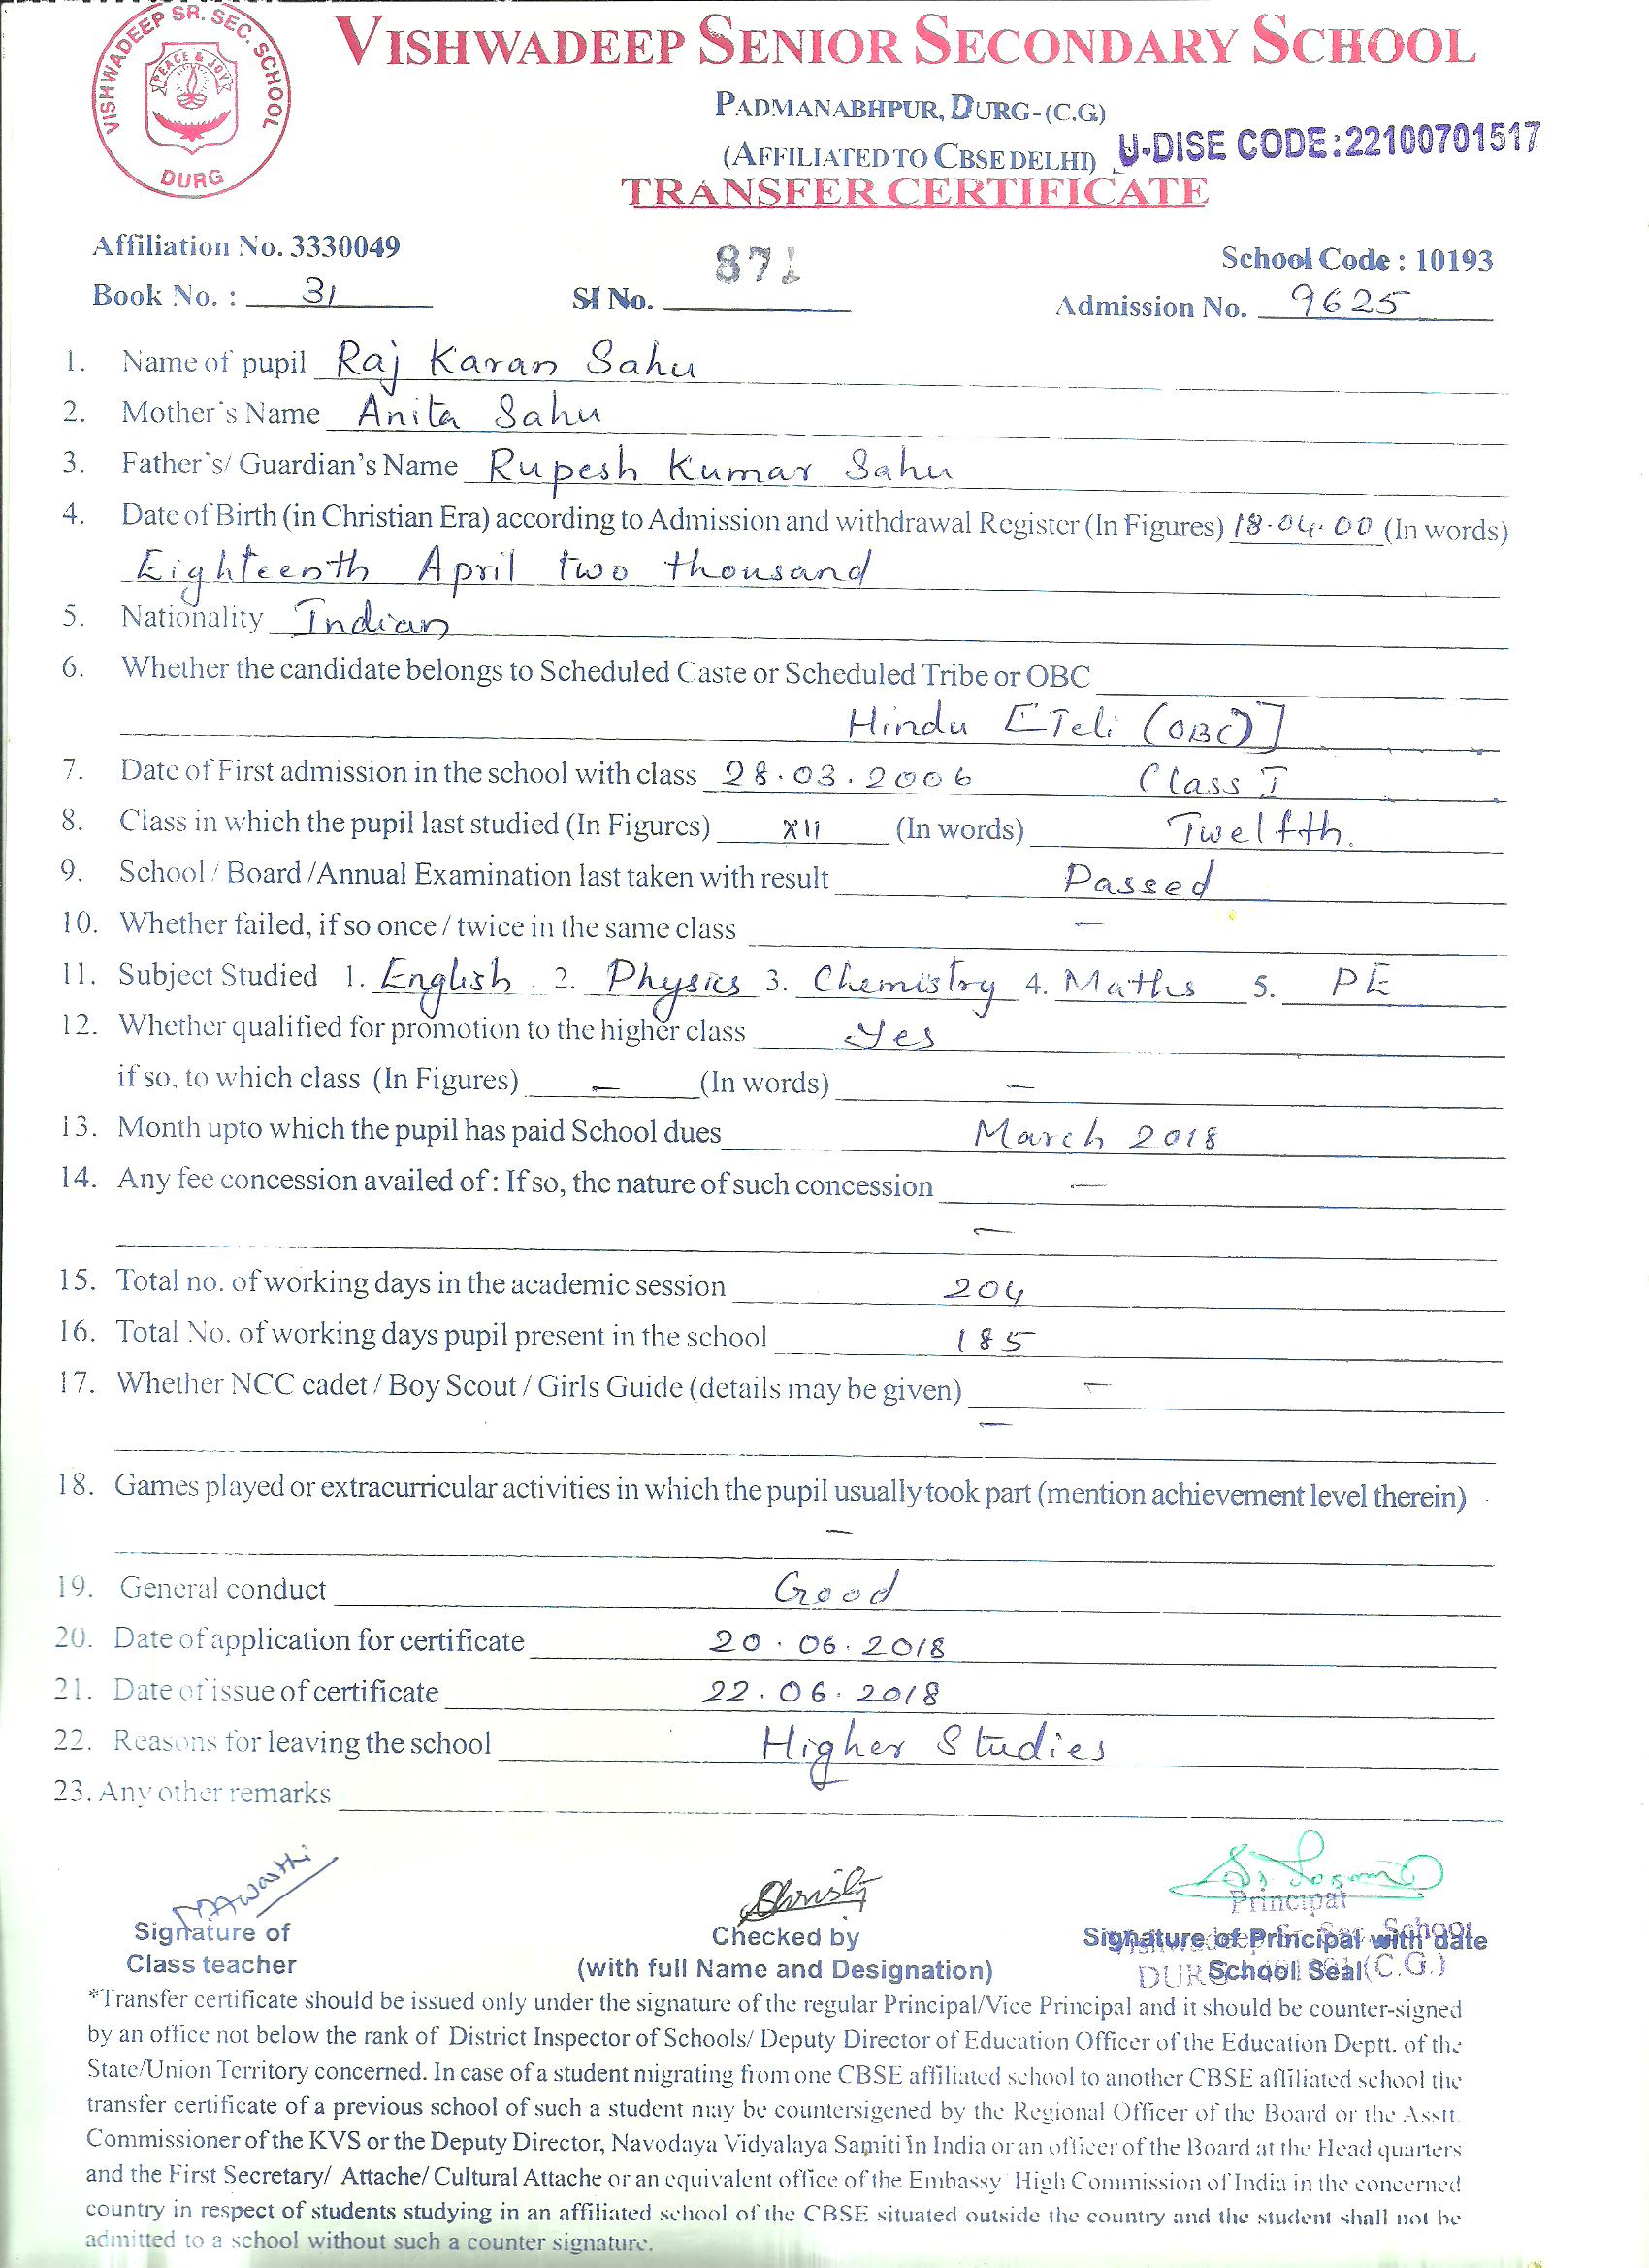 VISHWADEEP SR. SEC. SCHOOL
PEACE & JOY
DURG
VISHWADEEP SENIOR SECONDARY SCHOOL
PADMANABHPUR, DURG-(C.G)
(AFFILIATED TO CBSE DELHI) U-DISE CODE:22100701517
TRANSFER CERTIFICATE
Affiliation No. 3330049 School Code : 10193
Book No. : 31 Sl No. 871 Admission No. 9625
1. Name of pupil Raj Karan Sahu
2. Mother's Name Anita Sahu
3. Father's/ Guardian's Name Rupesh Kumar Sahu
4. Date of Birth (in Christian Era) according to Admission and withdrawal Register (In Figures) 18.04.00 (In words)
Eighteenth April two thousand
5. Nationality Indian
6. Whether the candidate belongs to Scheduled Caste or Scheduled Tribe or OBC
Hindu [Teli (OBC)]
7. Date of First admission in the school with class 28.03.2006 Class I
8. Class in which the pupil last studied (In Figures) XII (In words) Twelfth.
9. School / Board /Annual Examination last taken with result Passed
10. Whether failed, if so once / twice in the same class —
11. Subject Studied 1. English 2. Physics 3. Chemistry 4. Maths 5. PE
12. Whether qualified for promotion to the higher class Yes
if so, to which class (In Figures) — (In words) —
13. Month upto which the pupil has paid School dues March 2018
14. Any fee concession availed of : If so, the nature of such concession —
—
15. Total no. of working days in the academic session 204
16. Total No. of working days pupil present in the school 185
17. Whether NCC cadet / Boy Scout / Girls Guide (details may be given) —
—
18. Games played or extracurricular activities in which the pupil usually took part (mention achievement level therein)
—
19. General conduct Good
20. Date of application for certificate 20.06.2018
21. Date of issue of certificate 22.06.2018
22. Reasons for leaving the school Higher Studies
23. Any other remarks
Principal
Signature of Checked by Signature of Principal with date
Class teacher (with full Name and Designation) School Seal
Sr. Sec. School
DURG (C.G.)
*Transfer certificate should be issued only under the signature of the regular Principal/Vice Principal and it should be counter-signed
by an office not below the rank of District Inspector of Schools/ Deputy Director of Education Officer of the Education Deptt. of the
State/Union Territory concerned. In case of a student migrating from one CBSE affiliated school to another CBSE affiliated school the
transfer certificate of a previous school of such a student may be countersigened by the Regional Officer of the Board or the Asstt.
Commissioner of the KVS or the Deputy Director, Navodaya Vidyalaya Samiti in India or an officer of the Board at the Head quarters
and the First Secretary/ Attache/ Cultural Attache or an equivalent office of the Embassy High Commission of India in the concerned
country in respect of students studying in an affiliated school of the CBSE situated outside the country and the student shall not be
admitted to a school without such a counter signature.